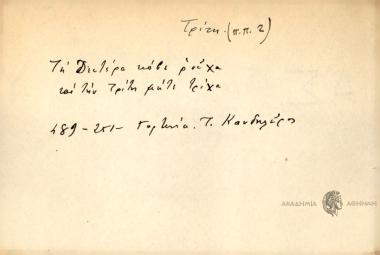 Τρίτη. (π.π. 2)
Τη Δευτέρα κόβε ρούχα
και την Τρίτη μήτε τρίχα
489 - 251 - Γορτυνία. Τ. Κανδηλώρος
ΑΚΑΔΗΜΙΑ ΑΘΗΝΩΝ